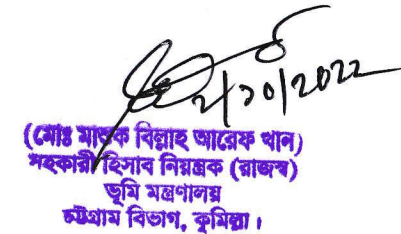 ২/১০/2022
(মোঃ মাশুক বিল্লাহ আরেফ খান)
সহকারী হিসাব নিয়ন্ত্রক (রাজস্ব)
ভূমি মন্ত্রণালয়
চট্টগ্রাম বিভাগ, কুমিল্লা।